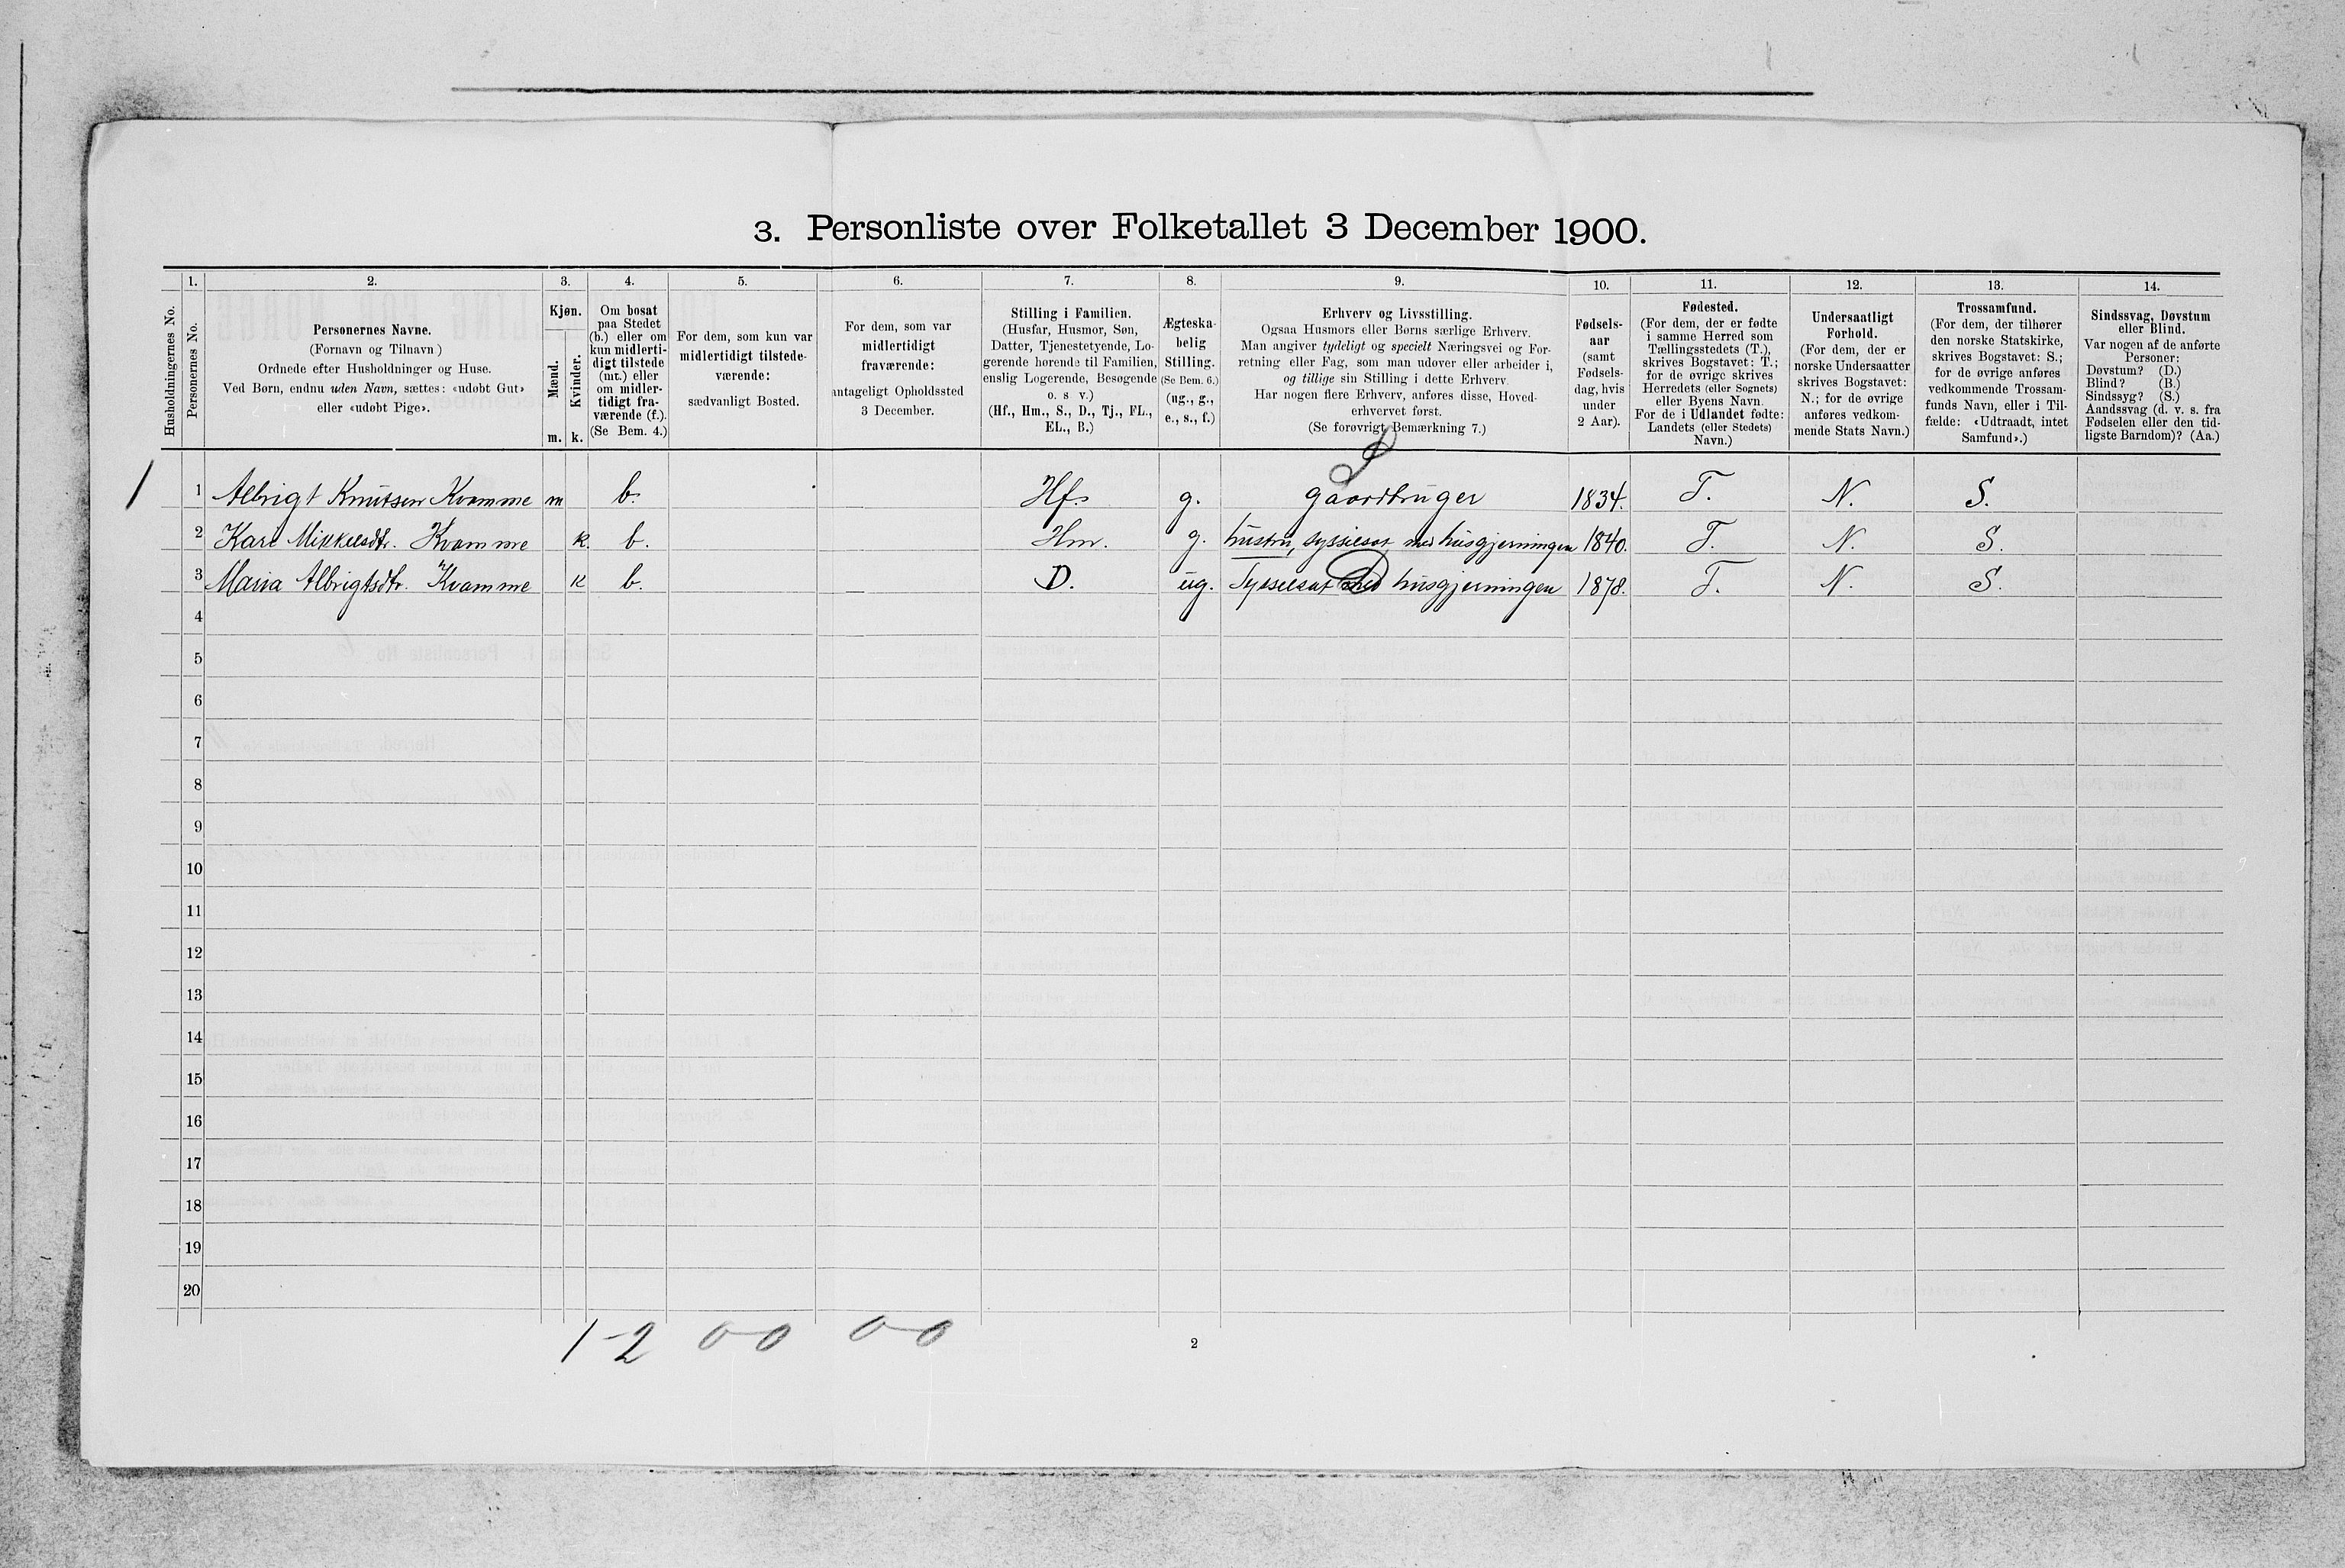 3. Personliste over Folketallet 3 December 1900.
1. 2. 3. 4. 5. 6. 7. 8. 9. 10. 11. 12. 13. 14.
Husholdningernes No.
Personernes No.
Personernes Navne.
(Fornavn og Tilnavn)
Ordnede efter Husholdninger og Huse.
Ved Børn, endnu uden Navn, sættes: «udøbt Gut»
eller «udøbt Pige».
Kjøn.
Mænd.
Kvinder.
m. k.
Om bosat
paa Stedet
(b.) eller om
kun midlerti-
digt tilstede
(mt.) eller
om midler-
tidigt fra-
værende (f.).
(Se Bem. 4.)
For dem, som kun var
midlertidigt tilstede-
værende:
sædvanligt Bosted.
For dem, som var
midlertidigt
fraværende:
antageligt Opholdssted
3 December.
Stilling i Familien.
(Husfar, Husmor, Søn,
Datter, Tjenestetyende, Lo-
gerende hørende til Familien,
enslig Logerende, Besøgende
o. s v.)
(Hf., Hm., S., D., Tj., FL.,
EL., B.)
Ægteska-
belig
Stilling.
(Se Bem. 6.)
(ug., g.,
e., s., f.)
Erhverv og Livsstilling.
Ogsaa Husmors eller Børns særlige Erhverv.
Man angiver tydeligt og specielt Næringsvei og For-
retning eller Fag, som man udøver eller arbeider i,
og tillige sin Stilling i dette Erhverv.
Har nogen flere Erhverv, anføres disse, Hoved-
erhvervet først.
(Se forøvrigt Bemærkning 7.)
Fødsels-
aar
(samt
Fødsels-
dag, hvis
under
2 Aar).
Fødested.
(For dem, der er fødte
i samme Herred som
Tællingsstedets (T.),
skrives Bogstavet: T.;
for de øvrige skrives
Herredets (eller Sognets)
eller Byens Navn.
For de i Udlandet fødte:
Landets (eller Stedets)
Navn.)
Undersaatligt
Forhold.
(For dem, der er
norske Undersaatter
skrives Bogstavet:
N.; for de øvrige
anføres vedkom-
mende Stats Navn.)
Trossamfund.
(For dem, der tilhører
den norske Statskirke,
skrives Bogstavet: S.;
for de øvrige anføres
vedkommende Trossam-
funds Navn, eller i Til-
fælde: «Udtraadt, intet
Samfund».)
Sindssvag, Døvstum
eller Blind.
Var nogen af de anførte
Personer:
Døvstum? (D.)
Blind? (B.)
Sindssyg? (S.)
Aandssvag (d. v. s. fra
Fødselen eller den tid-
ligste Barndom)? (Aa.)
1 1 Albrigt Knutsen Kvamme m b. Hf. g. gaardbruger 1834. T. N. S.
2 Kari Mikkelsdtr. Kvamme k. b. Hm. g. hustru, sysselsat med husgjerningen 1840. T. N. S.
3 Maria Albrigtsdtr. Kvamme k b. D. ug. Sysselsat med husgjerningen 1878. T. N. S.
4
5
6
7
8
9
10
11
12
13
14
15
16
17
18
19
20
1-2 0-0 0-0
2